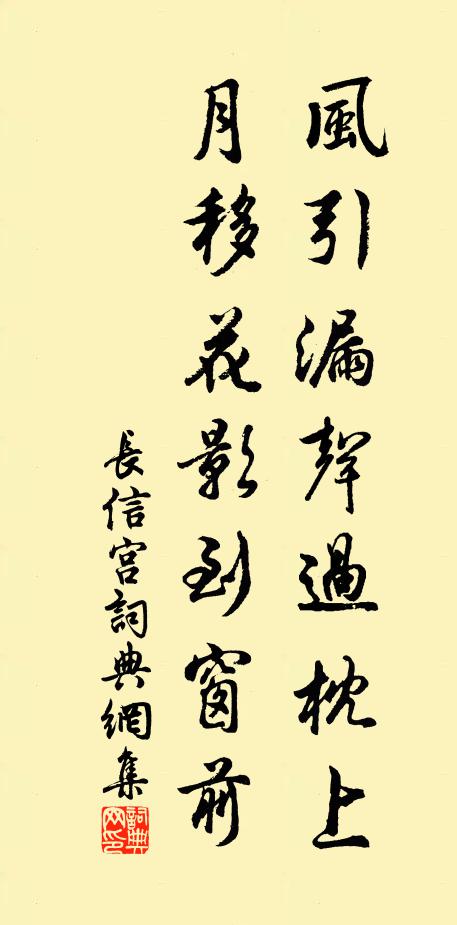 風引漏聲過枕上
月移花影到窗前
長信宮詞典網集
詞典
网印